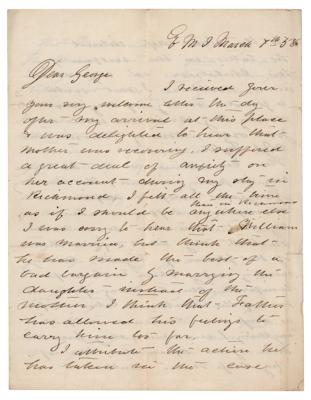 E M I March 7th 58
Dear George
I received your
after the day
after my arrival at this place
& was delighted to hear that
Mother was recovering. I suffered
a great deal of anxiety on
her account during my stay in
Richmond I felt all the time
than in Richmond
as if I should be anywhere else
I was sorry to hear that William
was married, but think that
he has made the best of a
bad bargain by marrying the
daughter instead of the
mother. I think that Father
has allowed his feelings to
carry him too far.
I attribute the action he
has taken in the case